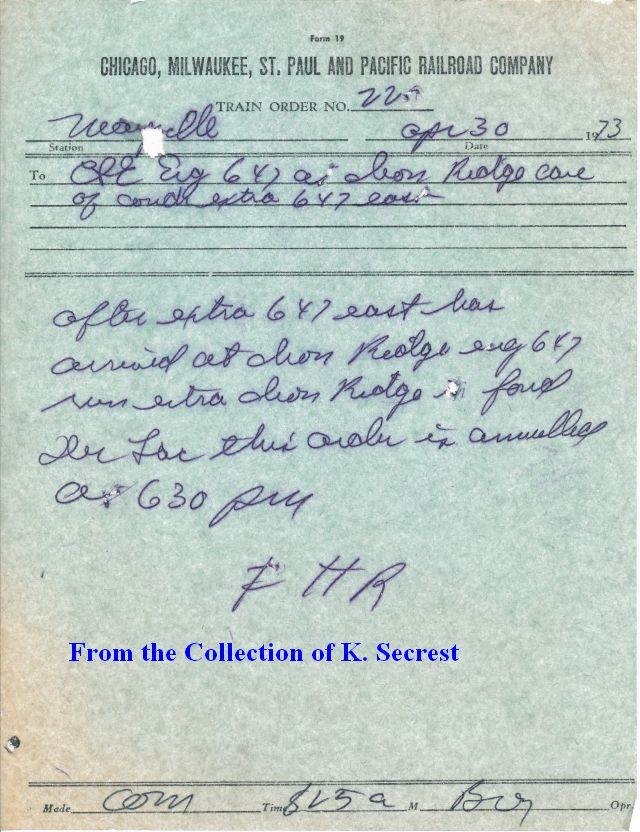 Form 19
CHICAGO, MILWAUKEE, ST. PAUL AND PACIFIC RAILROAD COMPANY
TRAIN ORDER NO. 229
Station Date apr 30 1973
To C&E Eng 647 at Iron Ridge care
of condr extra 647 east
after extra 647 east has
arrived at Iron Ridge eng 647
run extra Iron Ridge to fond
Du Lac this order is annulled
at 630 pm
F H R
From the Collection of K. Secrest
Made Com Time 815 a M Opr